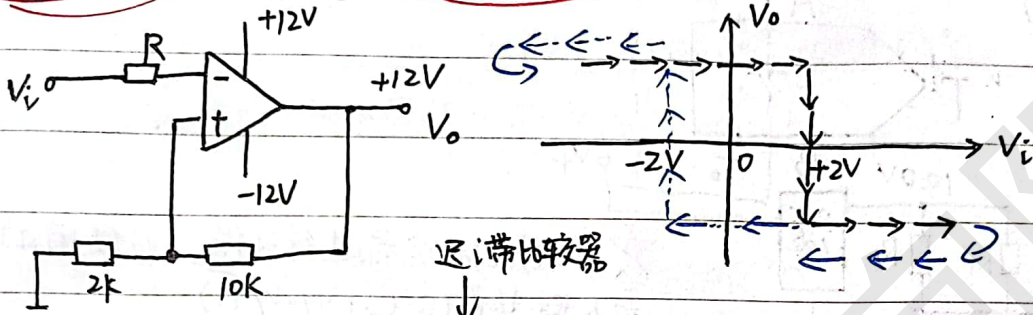 +12V
R
Vi
-
+
+12V
Vo
-12V
2K
10K
迟滞比较器
Vo
-2V
0
+2V
Vi